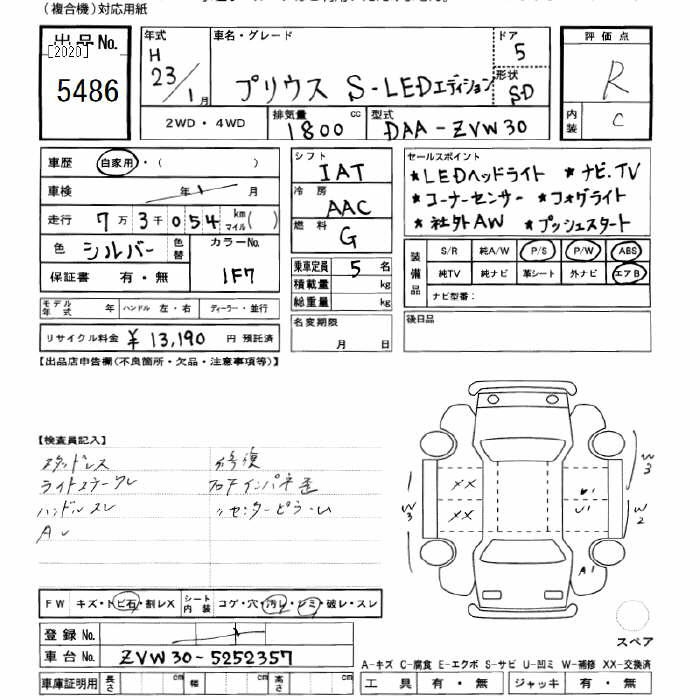 (複合機)対応用紙
出品No.
[2020]
5486
年式
H
23/1月
車名・グレード
プリウス S-LEDエディション
ドア
5
形状
SD
評価点
R
内装
C
2WD・4WD
排気量
1800 cc
型式
DAA-ZVW30
車歴 自家用・( )
車検 年 月
走行 7万3千054 km マイル( )
色 シルバー 色替
カラーNo.
1F7
保証書 有・無
モデル年式 年 ハンドル 左・右 ディーラー・並行
リサイクル料金 ¥13,190 円 預託済
シフト
IAT
冷房
AAC
燃料
G
乗車定員 5 名
積載量 kg
総重量 kg
名変期限
月 日
セールスポイント
★LEDヘッドライト ★ナビ.TV
★コーナーセンサー ★フォグライト
★社外AW ★プッシュスタート
装備品
S/R 純A/W P/S P/W ABS
純TV 純ナビ 革シート 外ナビ エアB
ナビ型番:
後日品
【出品店申告欄(不良箇所・欠品・注意事項等)】
【検査員記入】
スタッドレス
ハンドルスレ
W3
XX
XX
W3
W2
A1
スペア
FW キズ・トビ石・割レX シート内装 コゲ・穴・汚レ・シミ・破レ・スレ
登録No.
車台No. ZVW30-5252357
車庫証明用 長さ cm 幅 cm 高さ cm
A-キズ C-腐食 E-エクボ S-サビ U-凹ミ W-補修 XX-交換済
工具 有・無 ジャッキ 有・無